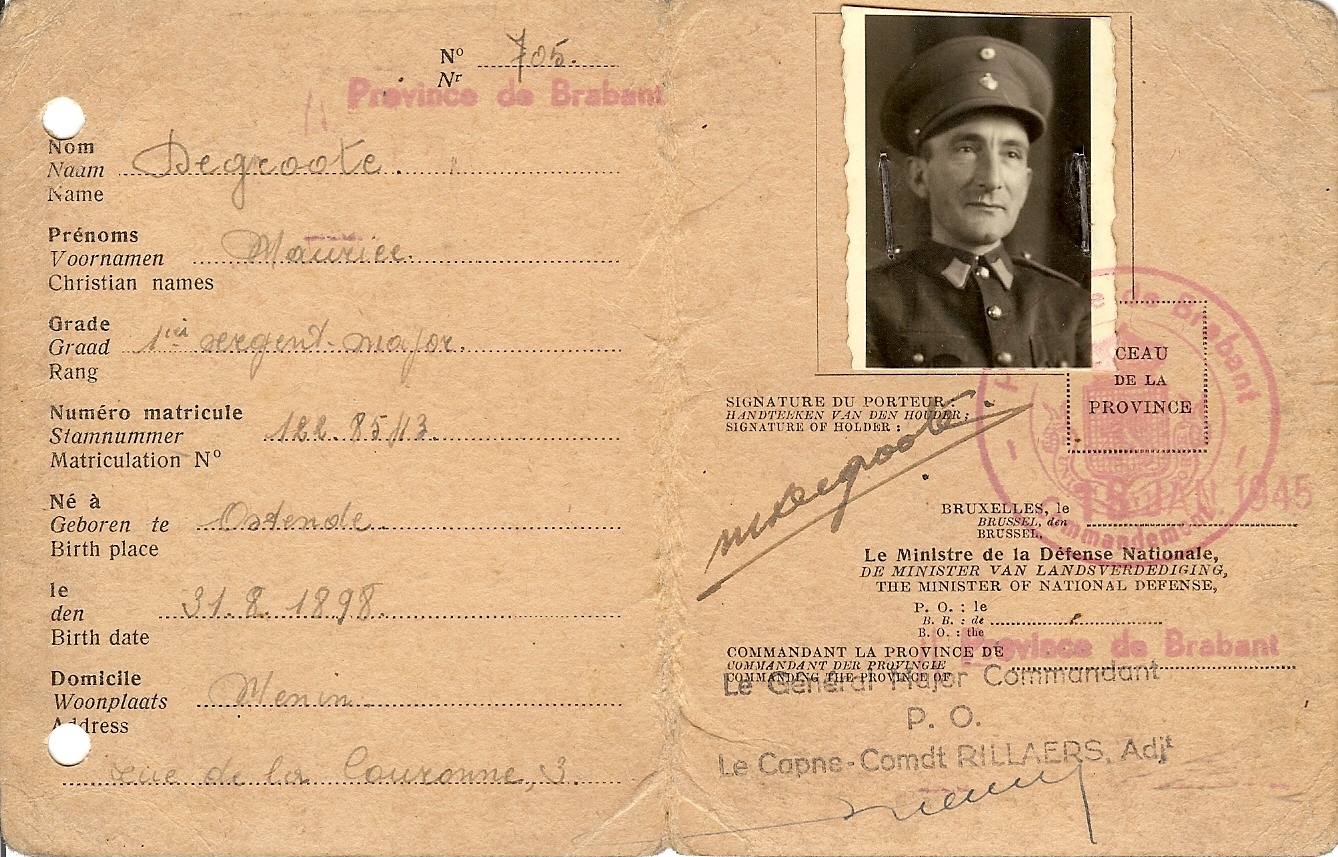 Nº 705.
Nr
Province de Brabant
Nom
Naam Degroote.
Name
Prénoms
Voornamen Maurice.
Christian names
Grade
Graad 1er sergent-major.
Rang
Numéro matricule
Stamnummer 122.85/13.
Matriculation Nº
Né à
Geboren te Ostende.
Birth place
le
den 31.8.1898.
Birth date
Domicile
Woonplaats Menin.
Address
rue de la Couronne, 3.
SIGNATURE DU PORTEUR:
HANDTEEKEN VAN DEN HOUDER;
SIGNATURE OF HOLDER:
MDegroote.
CEAU
DE LA
PROVINCE
e de Brabant
Commandement
BRUXELLES, le 18 JAN. 1945
BRUSSEL, den
BRUSSEL,
Le Ministre de la Défense Nationale,
DE MINISTER VAN LANDSVERDEDIGING,
THE MINISTER OF NATIONAL DEFENSE,
P. O. : le
B. B. : de
B. O. : the
COMMANDANT LA PROVINCE DE Province de Brabant
COMMANDANT DER PROVINCIE
COMMANDING THE PROVINCE OF
Le Général Major Commandant
P. O.
Le Capne-Comdt RILLAERS, Adjt